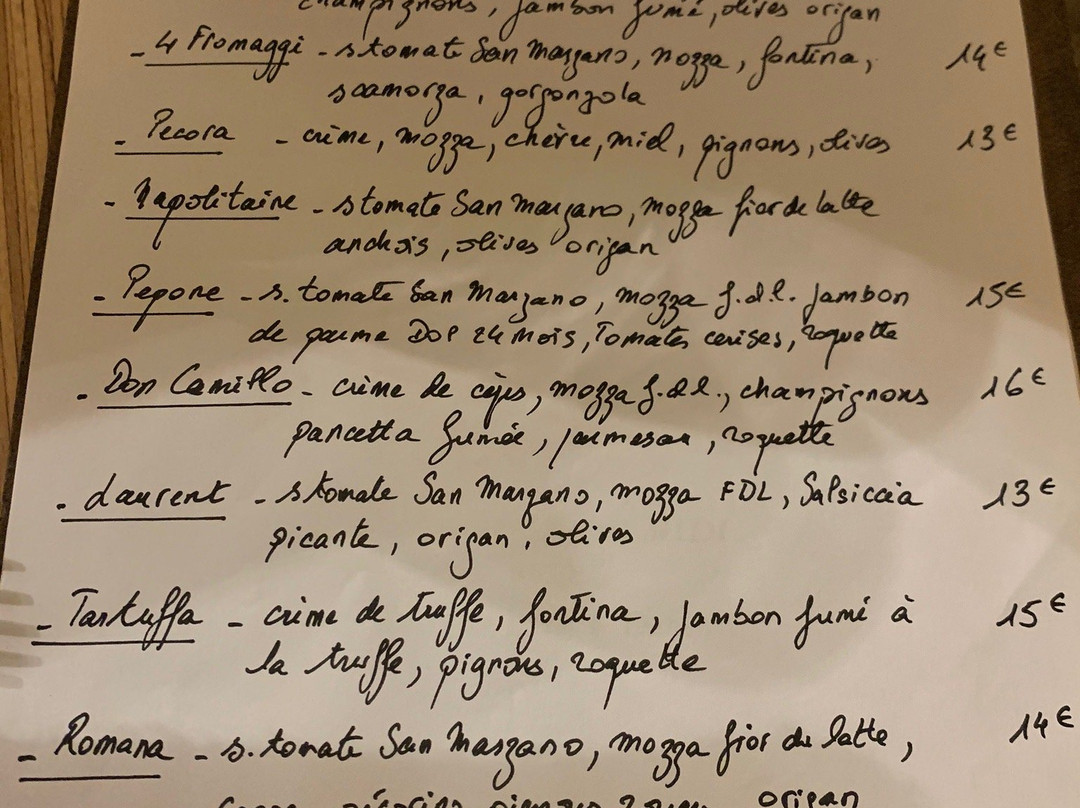 champignons, jambon fumé, olives origan
- 4 Fromaggi - s tomate San Marzano, mozza, fontina, 14€
scamorza, gorgonzola
- Pecora - crème, mozza, chèvre, miel, pignons, olives 13€
- Napolitaine - s tomate San Marzano, mozza fior de latte
anchois, olives origan
- Pepone - s. tomate San Marzano, mozza f.d.l. jambon 15€
de parme DOP 24 mois, Tomates cerises, roquette
- Don Camillo - crème de cèpes, mozza f.d.l., champignons 16€
pancetta fumée, parmesan, roquette
- Laurent - s tomate San Marzano, mozza FDL, Salsiccia 13€
picante, origan, olives
- Tartuffa - crème de truffe, fontina, jambon fumé à 15€
la truffe, pignons, roquette
- Romana - s. tomate San Marzano, mozza fior de latte, 14€
origan